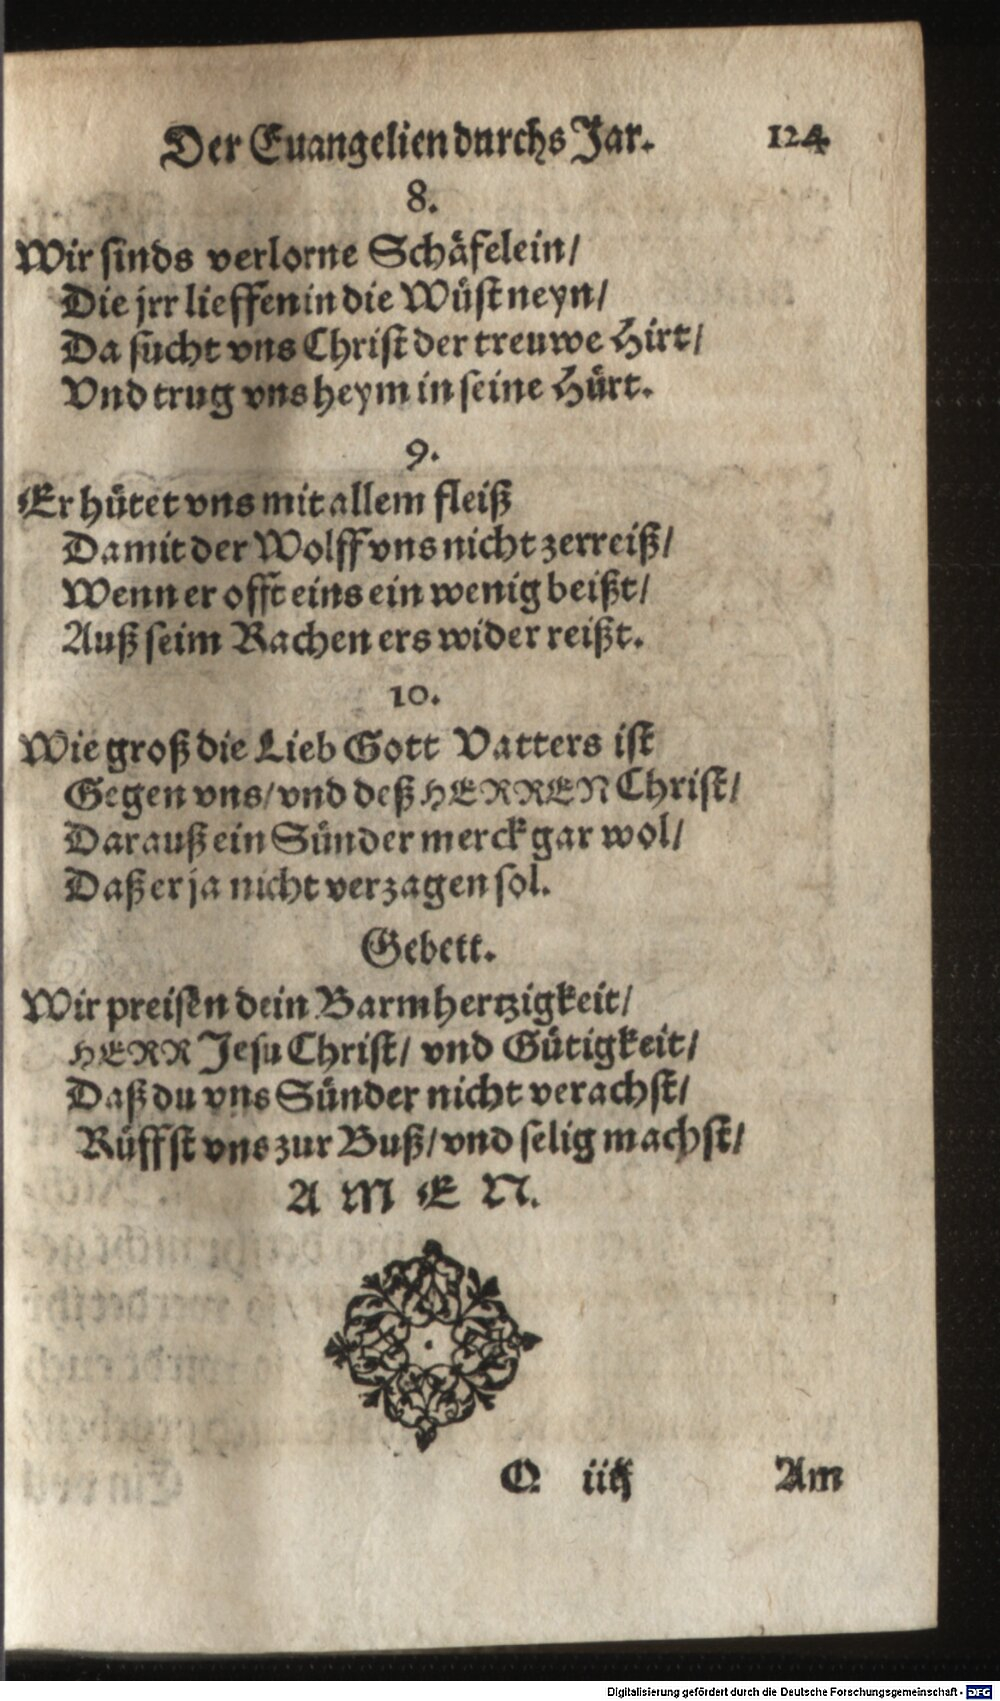 Der Euangelien durchs Jar. 124
8.
Wir sinds verlorne Schäfelein/
Die jrr lieffen in die Wüst neyn/
Da sucht vns Christ der treuwe Hirt/
Vnd trug vns heym in seine Hürt.
9.
Er hütet vns mit allem fleiß
Damit der Wolff vns nicht zerreiß/
Wenn er offt eins ein wenig beißt/
Auß seim Rachen ers wider reißt.
10.
Wie groß die Lieb Gott Vatters ist
Gegen vns/ vnd deß HERREN Christ/
Darauß ein Sünder merck gar wol/
Daß er ja nicht verzagen sol.
Gebett.
Wir preisen dein Barmhertzigkeit/
HERR Jesu Christ/ vnd Gütigkeit/
Daß du vns Sünder nicht verachst/
Rüffst vns zur Buß/ vnd selig machst/
A M E N.
Q iiij Am
Digitalisierung gefördert durch die Deutsche Forschungsgemeinschaft - DFG